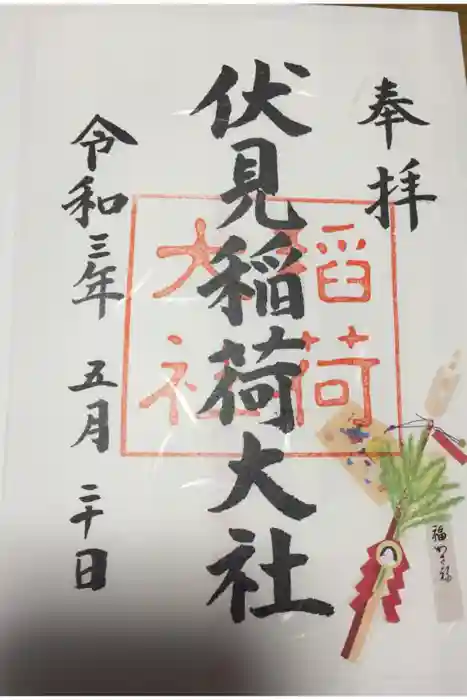 奉拝
伏見稲荷大社
稲荷
大社
令和三年 五月 二十日